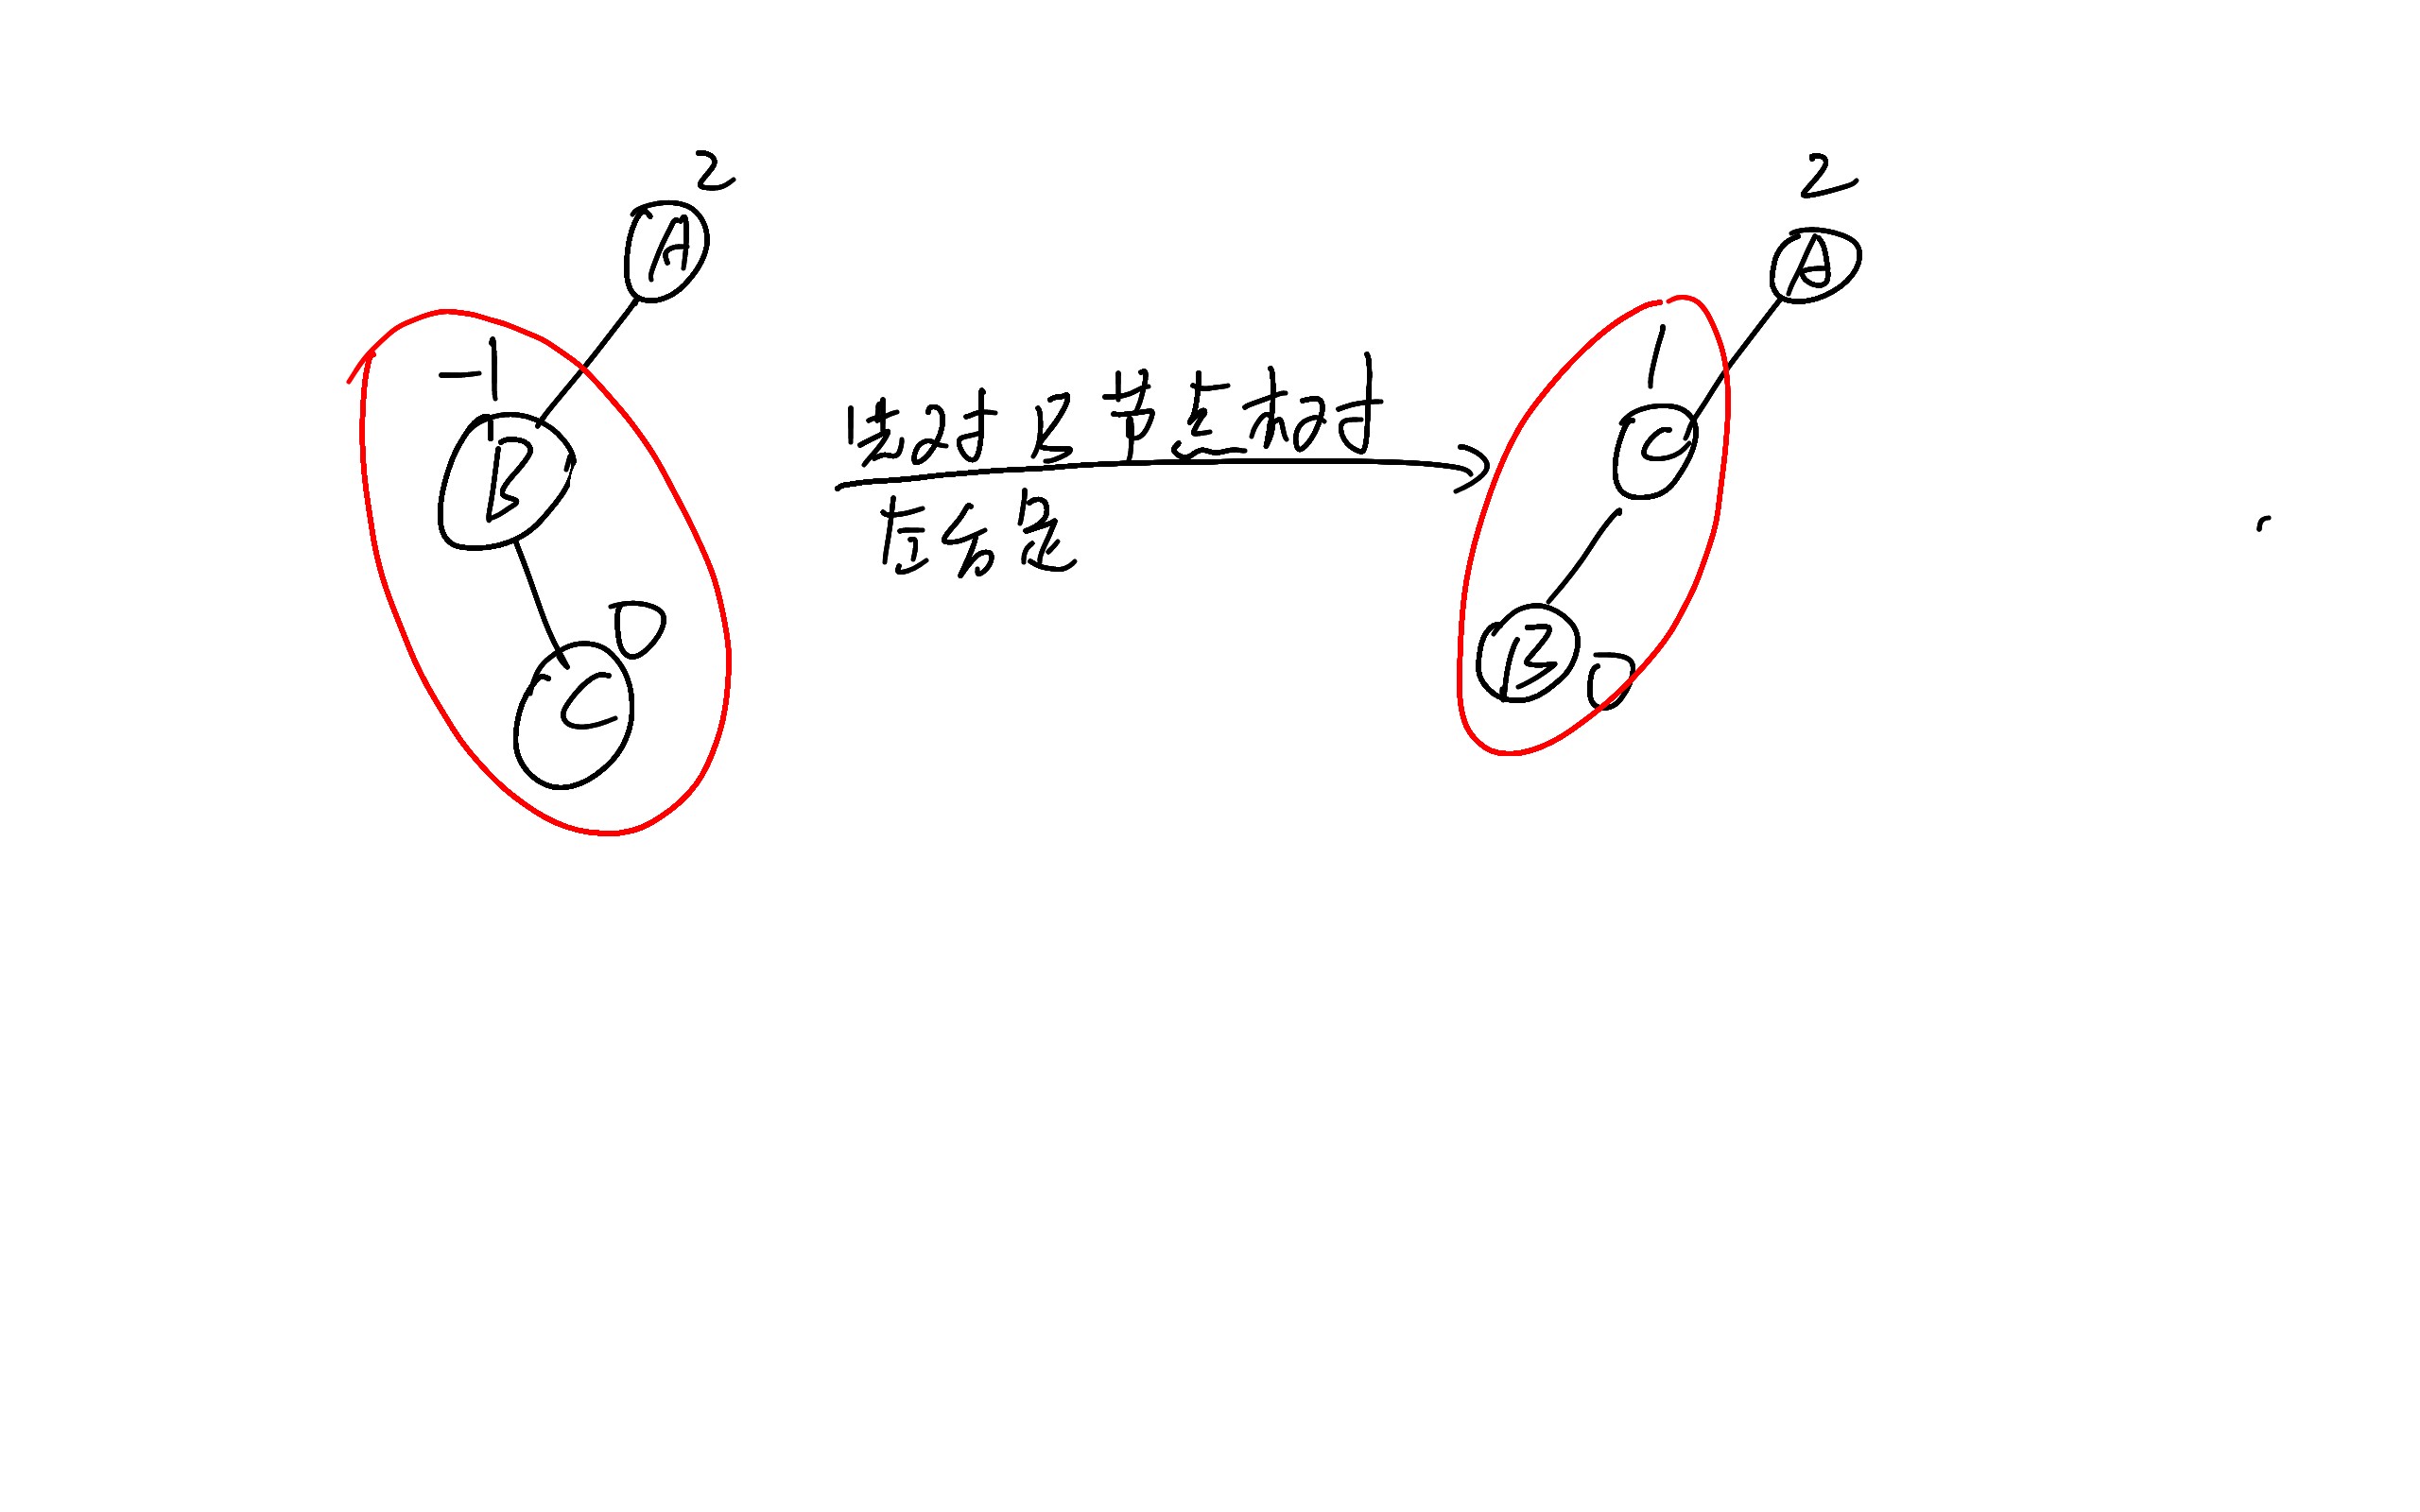 2
A
-1
B
0
C
先对B节点相对
左右旋
2
A
1
C
B
0